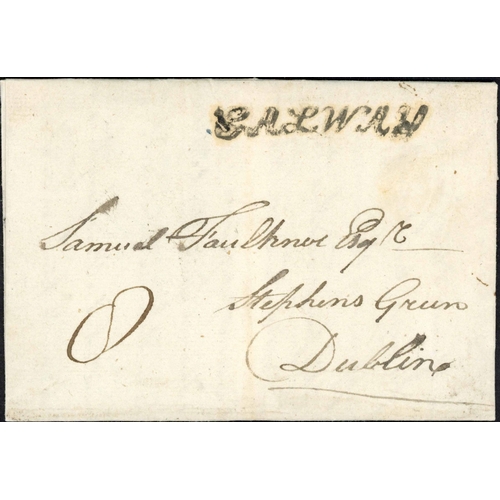 GALWAY
Samuel Faulkner Esqr
Stephens Green
8
Dublin